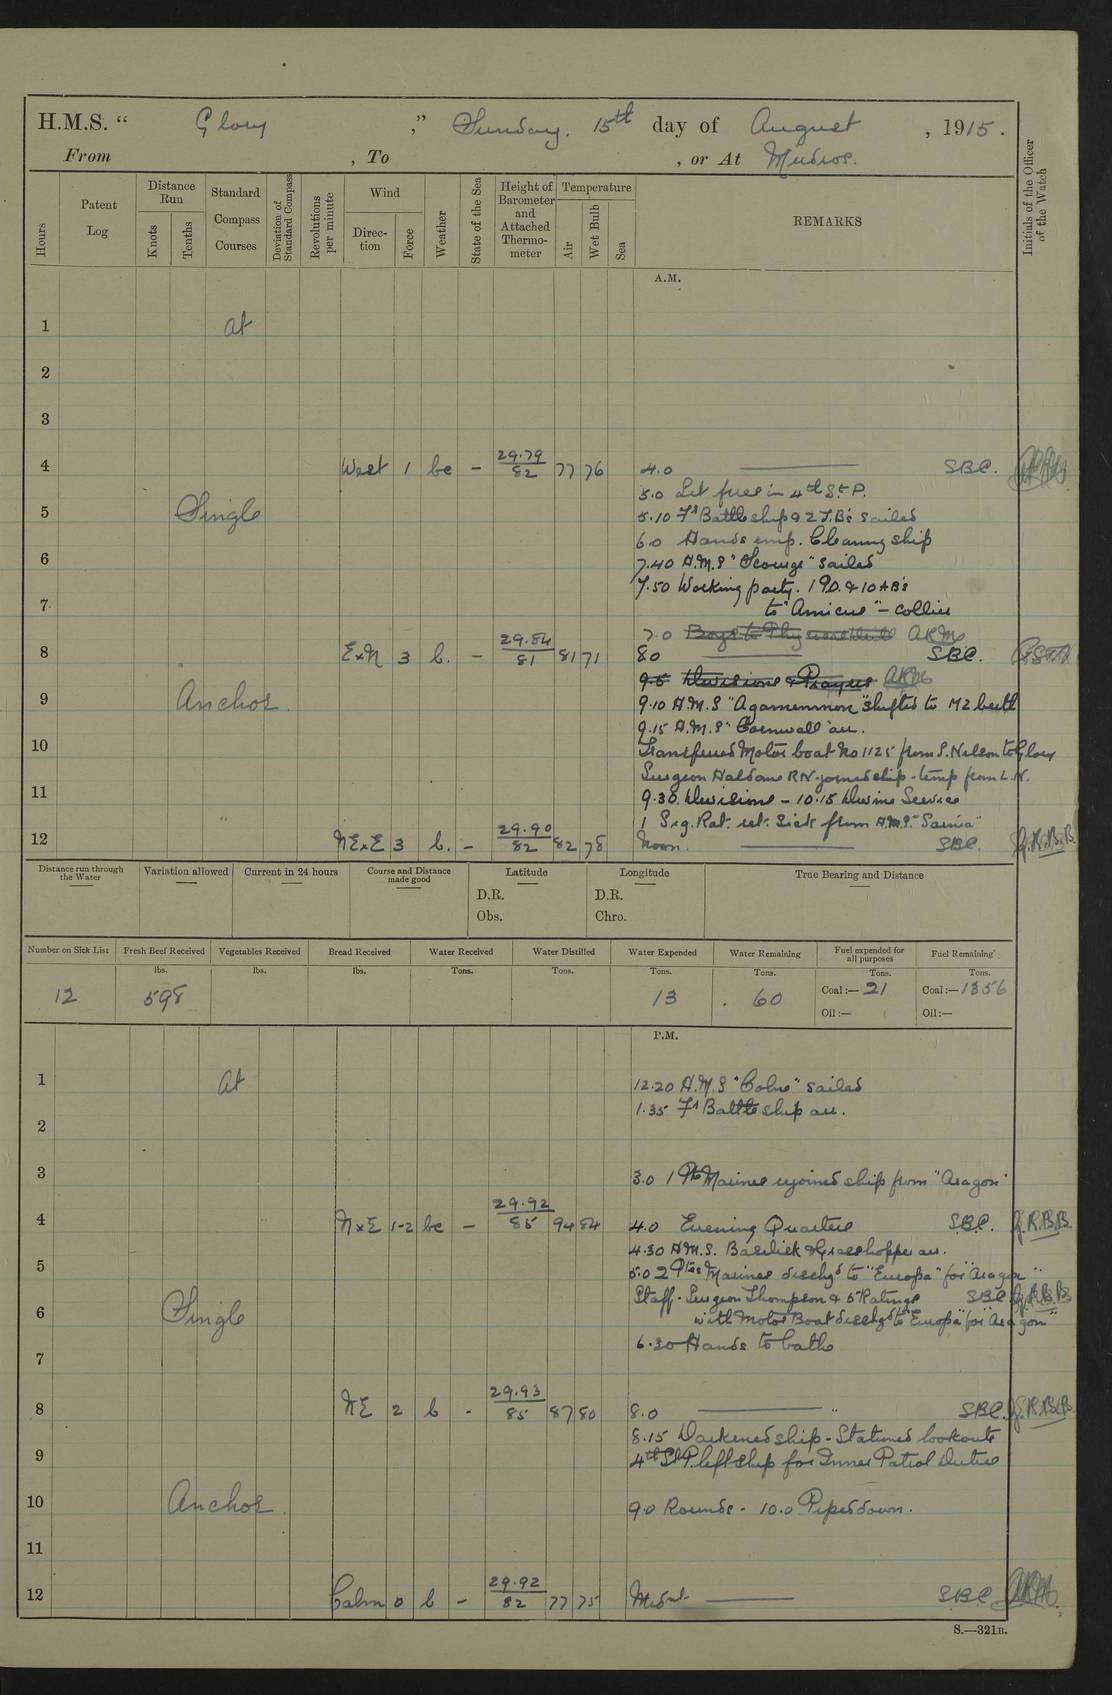 H.M.S. " Glory ," Sunday. 15th day of August , 1915.
From , To , or At Mudros.
Hours
Patent Log
Distance Run
Knots
Tenths
Standard Compass Courses
Deviation of Standard Compass
Revolutions per minute
Wind
Direction
Force
Weather
State of the Sea
Height of Barometer and Attached Thermometer
Temperature
Air
Wet Bulb
Sea
REMARKS
Initials of the Officer of the Watch
A.M.
1 At
2
3
4 West 1 bc - 29.79 82 77 76 4.0 SBC.
5.0 Lit fires in 4th S.P.
5 Single 5.10 Fr Battleship & 2 T.B's sailed
6.0 Hands emp. Cleaning ship
6 7.40 H.M.S "Scourge" sailed
7.50 Working party. 1 P.O. & 10 AB's
7 to "Amicus" - collier
7.0 Boys to Phy
8 ExN 3 b. - 29.84 81 81 71 8.0 SBC.
9.5 Divisions & Prayers
9 Anchor. 9.10 H.M.S "Agamemnon" shifted to M2 berth
9.15 H.M.S "Cornwall" arr.
10 Transferred Motor boat No 1125 from L. Nelson to Glory
Surgeon Haldane RN joined ship - temp from L.N.
11 9.30. Divisions - 10.15 Divine Service
1 Sig. Rat. ret. Sick from H.M.S. "Sarnia"
12 NExE 3 b. - 29.90 82 82 78 Noon. SBC. G.R.B.B.
Distance run through the Water
Variation allowed
Current in 24 hours
Course and Distance made good
Latitude
D.R.
Obs.
Longitude
D.R.
Chro.
True Bearing and Distance
Number on Sick List
Fresh Beef Received
Vegetables Received
Bread Received
Water Received
Water Distilled
Water Expended
Water Remaining
Fuel expended for all purposes
Fuel Remaining
lbs. lbs. lbs. Tons. Tons. Tons. Tons. Tons. Tons.
12 598 13 60 Coal:— 21 Coal:— 1356
Oil:— Oil:—
P.M.
1 At 12.20 H.M.S "Colne" sailed
1.35 Fr Battleship arr.
2
3 3.0 1 Pte Marines rejoined ship from "Aragon"
4 NxE 1-2 bc - 29.92 85 94 84 4.0 Evening Quarters SBC. G.R.B.B.
4.30 H.M.S. Basilisk & Grasshopper arr.
5 5.0 2 Ptes Marines dischgd to "Europa" for "Aragon"
Staff-Surgeon Thompson & 5 Ratings SBC G.R.B.B.
6 Single with Motor Boat dischgd to "Europa" for "Aragon"
6.30 Hands to bathe
7
8 NE 2 b - 29.93 85 87 80 8.0 SBC. G.R.B.B.
8.15 Darkened ship - Stationed lookouts
9 4th S.P. left ship for Inner Patrol Duties
10 Anchor. 9.0 Rounds - 10.0 Piped down.
11
12 Calm 0 b - 29.92 82 77 75 Midnt. SBC
S.—321B.